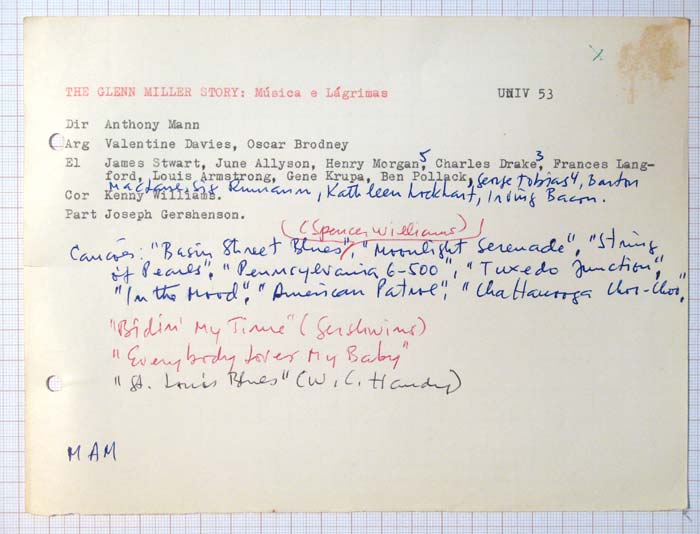 THE GLENN MILLER STORY: Música e Lágrimas UNIV 53
Dir Anthony Mann
Arg Valentine Davies, Oscar Brodney
El James Stwart, June Allyson, Henry Morgan,5 Charles Drake,3 Frances Lang-
ford, Louis Armstrong, Gene Krupa, Ben Pollack, George Tobias4, Barton
MacLane, Sig Rumann, Kathleen Lockhart, Irving Bacon.
Cor Kenny Williams.
Part Joseph Gershenson.
(Spencer Williams)
Canções: "Basin Street Blues", "Moonlight Serenade", "String
of Pearls", "Pennsylvania 6-500", "Tuxedo Junction",
"In the Mood", "American Patrol", "Chattanooga Choo-Choo",
"Bidin' My Time" (Gershwins)
"Everybody Loves My Baby"
"St. Louis Blues" (W. C. Handy)
MAM